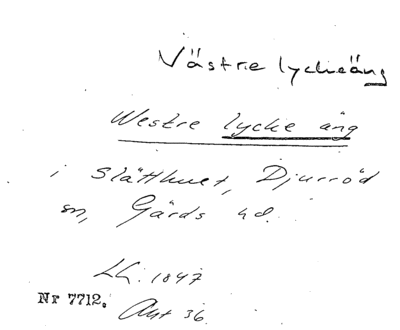 Västre lyckeäng
Westre lycke äng
i Slätthult, Djurröd
sn, Gärds hd.
LA. 1847
Nr 7712. Akt 36